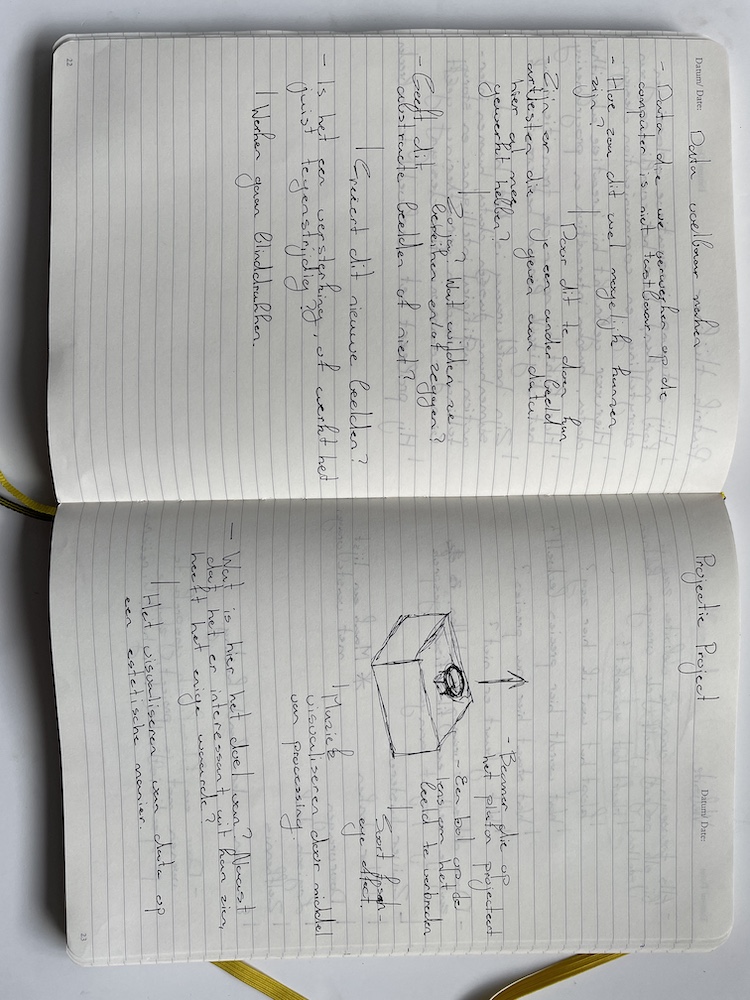 Datum/ Date:
Data voelbaar maken
- Data die we verwerken op de
computer is niet tastbaar.
- Hoe zou dit wel mogelijk kunnen
zijn?
Door dit te doen kan
je een ander beeld
geven aan data.
- Zijn er
artiesten die
hier al mee
gewerkt hebben?
Zo ja? Wat wilden ze
bereiken en/of zeggen?
- Geeft dit
abstracte beelden of niet?
Creëert dit nieuwe beelden?
- Is het een versterking, of werkt het
juist tegenstrijdig?
Werken gaan blinddrukken.
22
Projectie Project
Datum/ Date:
- Beamer die op
het plafon projecteert
- Een bol op de
lens om het
beeld te verbreden
Soort
eye effect.
Muziek
visualiseren door middel
van processing.
- Wat is hier het doel van? Naast
dat het er interessant uit kan zien,
heeft het enige waarde?
Het visualiseren van data op
een estetische manier.
23